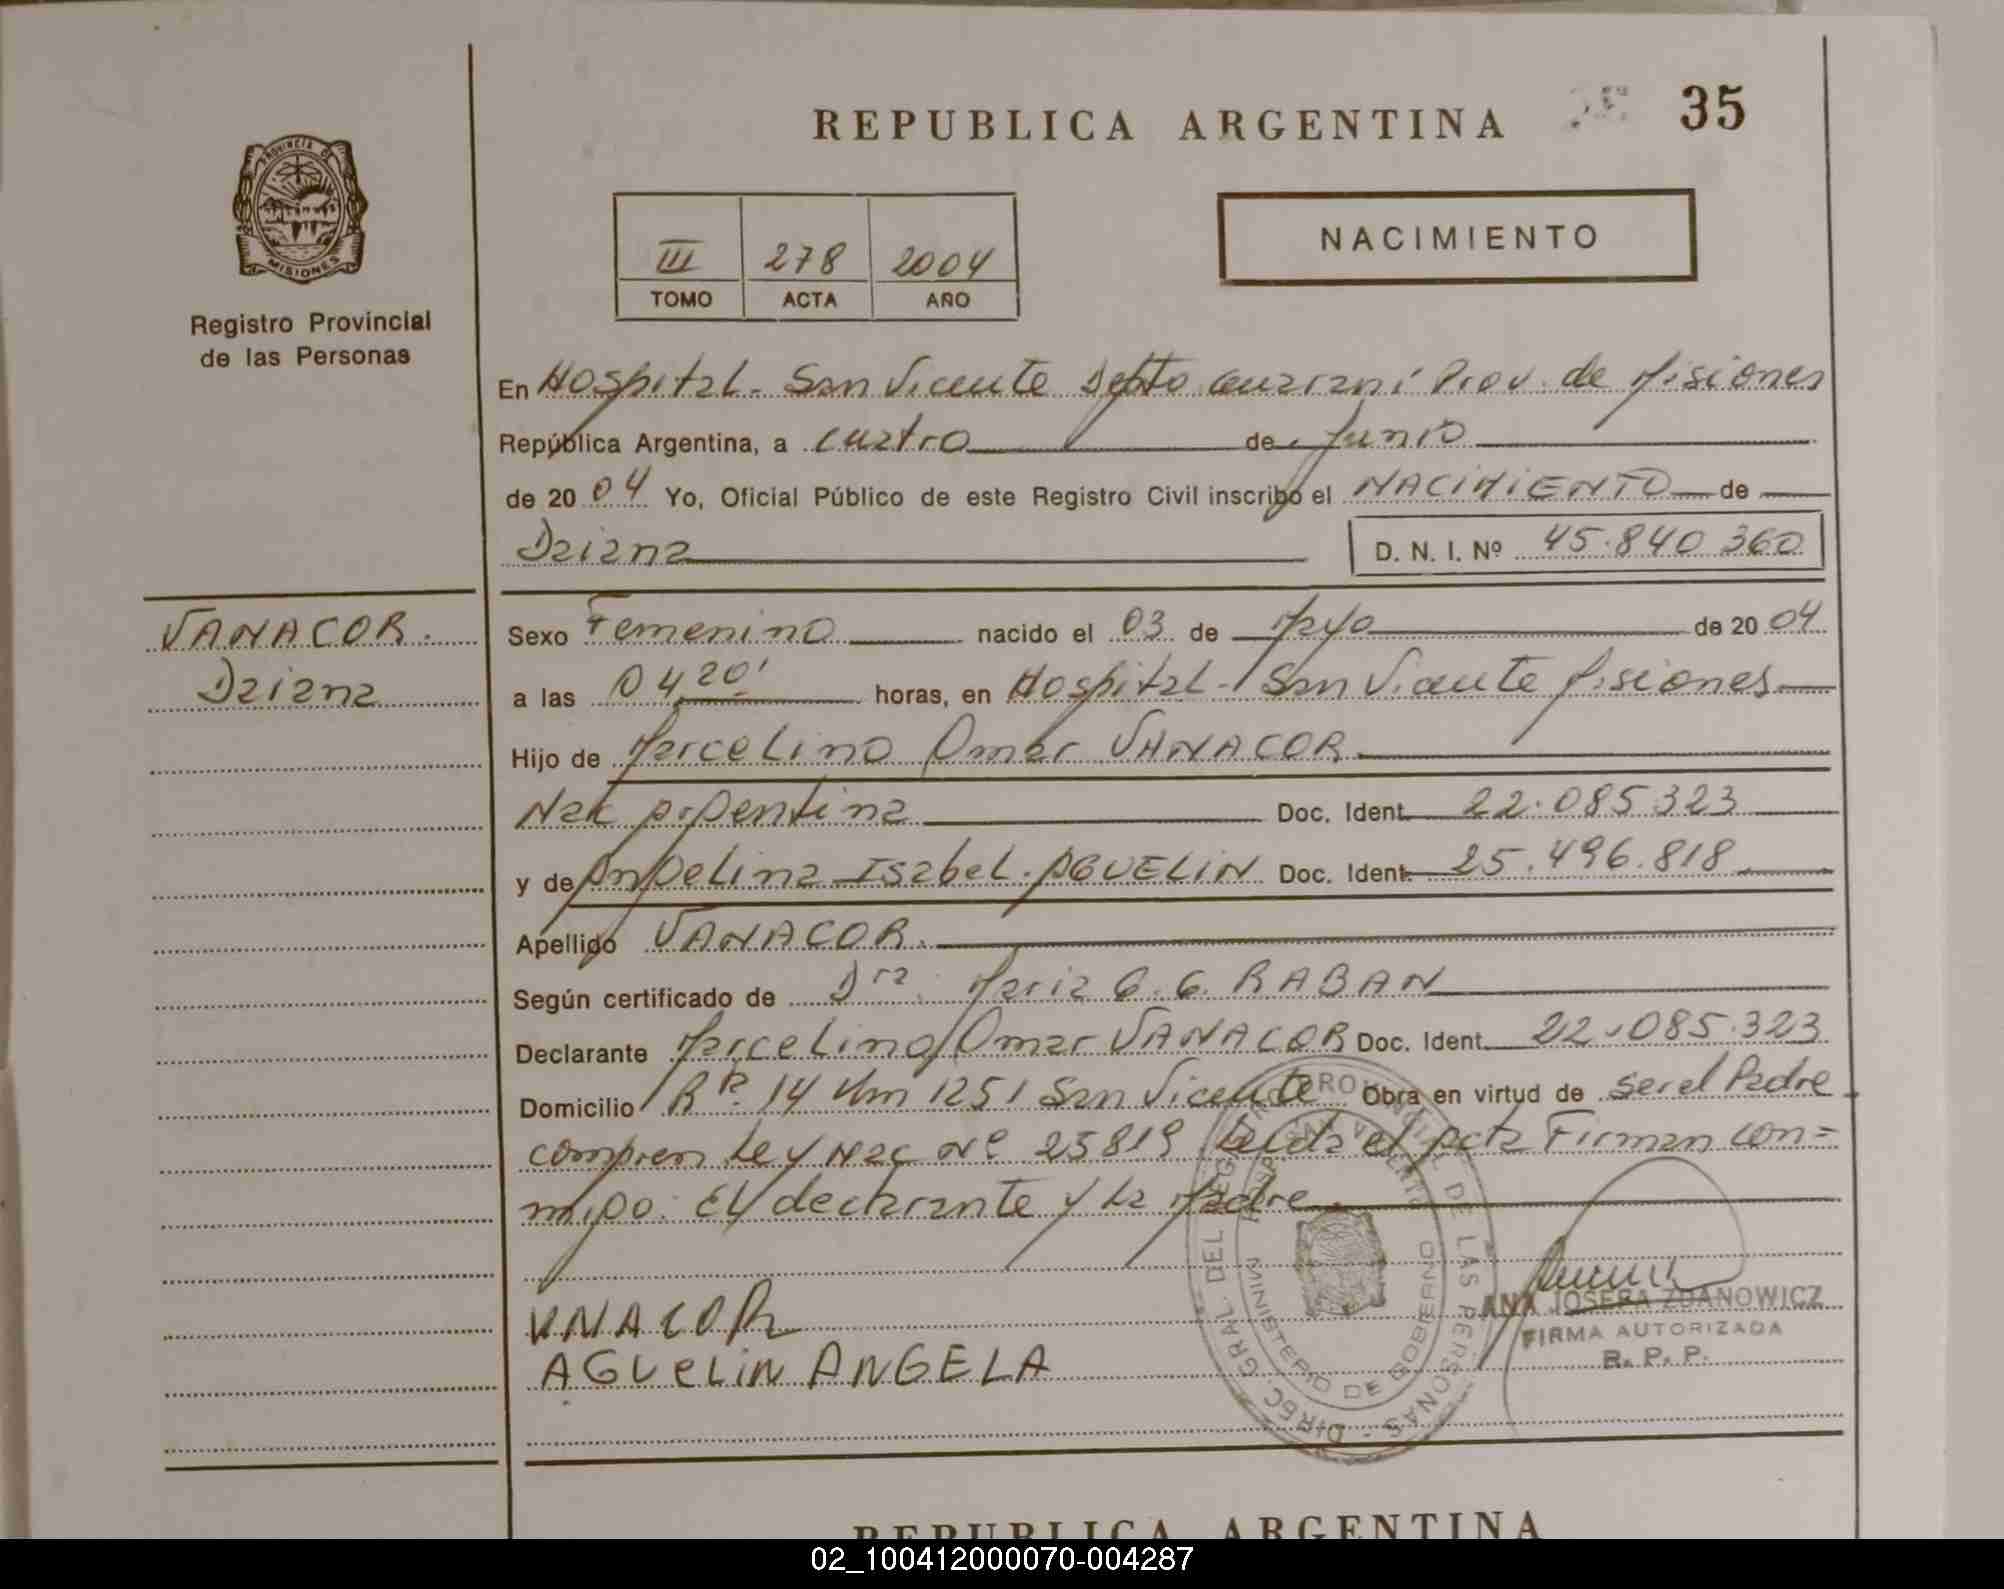 REPUBLICA ARGENTINA 35
PROVINCIA DE
MISIONES
Registro Provincial
de las Personas
III 278 2004
TOMO ACTA AÑO
NACIMIENTO
En Hospital - San Vicente Depto Guaraní Prov. de Misiones
República Argentina, a cuatro de Junio
de 2004 Yo, Oficial Público de este Registro Civil inscribo el NACIMIENTO de
Daiana D. N. I. Nº 45.840.360
VANACOR.
Daiana
Sexo Femenino nacido el 03 de Mayo de 2004
a las 04,20' horas, en Hospital - San Vicente Misiones
Hijo de Marcelino Omar VANACOR
Nac Argentina Doc. Ident. 22.085.323
y de Angelina Isabel. AGUELIN Doc. Ident. 25.496.818
Apellido VANACOR.
Según certificado de Dra. Maria G. G. RABAN
Declarante Marcelino Omar VANACOR Doc. Ident. 22.085.323
Domicilio Rª. 14 Km 1251 San Vicente Obra en virtud de ser el Padre
compren Ley Nac Nº 25819 Leida el acta Firman con=
migo: El declarante y La Madre.
VNACOR
AGUELIN ANGELA
DIREC. GRAL. DEL REGISTRO PROVINCIAL DE LAS PERSONAS -
MINISTERIO DE GOBIERNO
ANA JOSEFA ZDANOWICZ
FIRMA AUTORIZADA
R. P. P.
REPUBLICA ARGENTINA
02_100412000070-004287